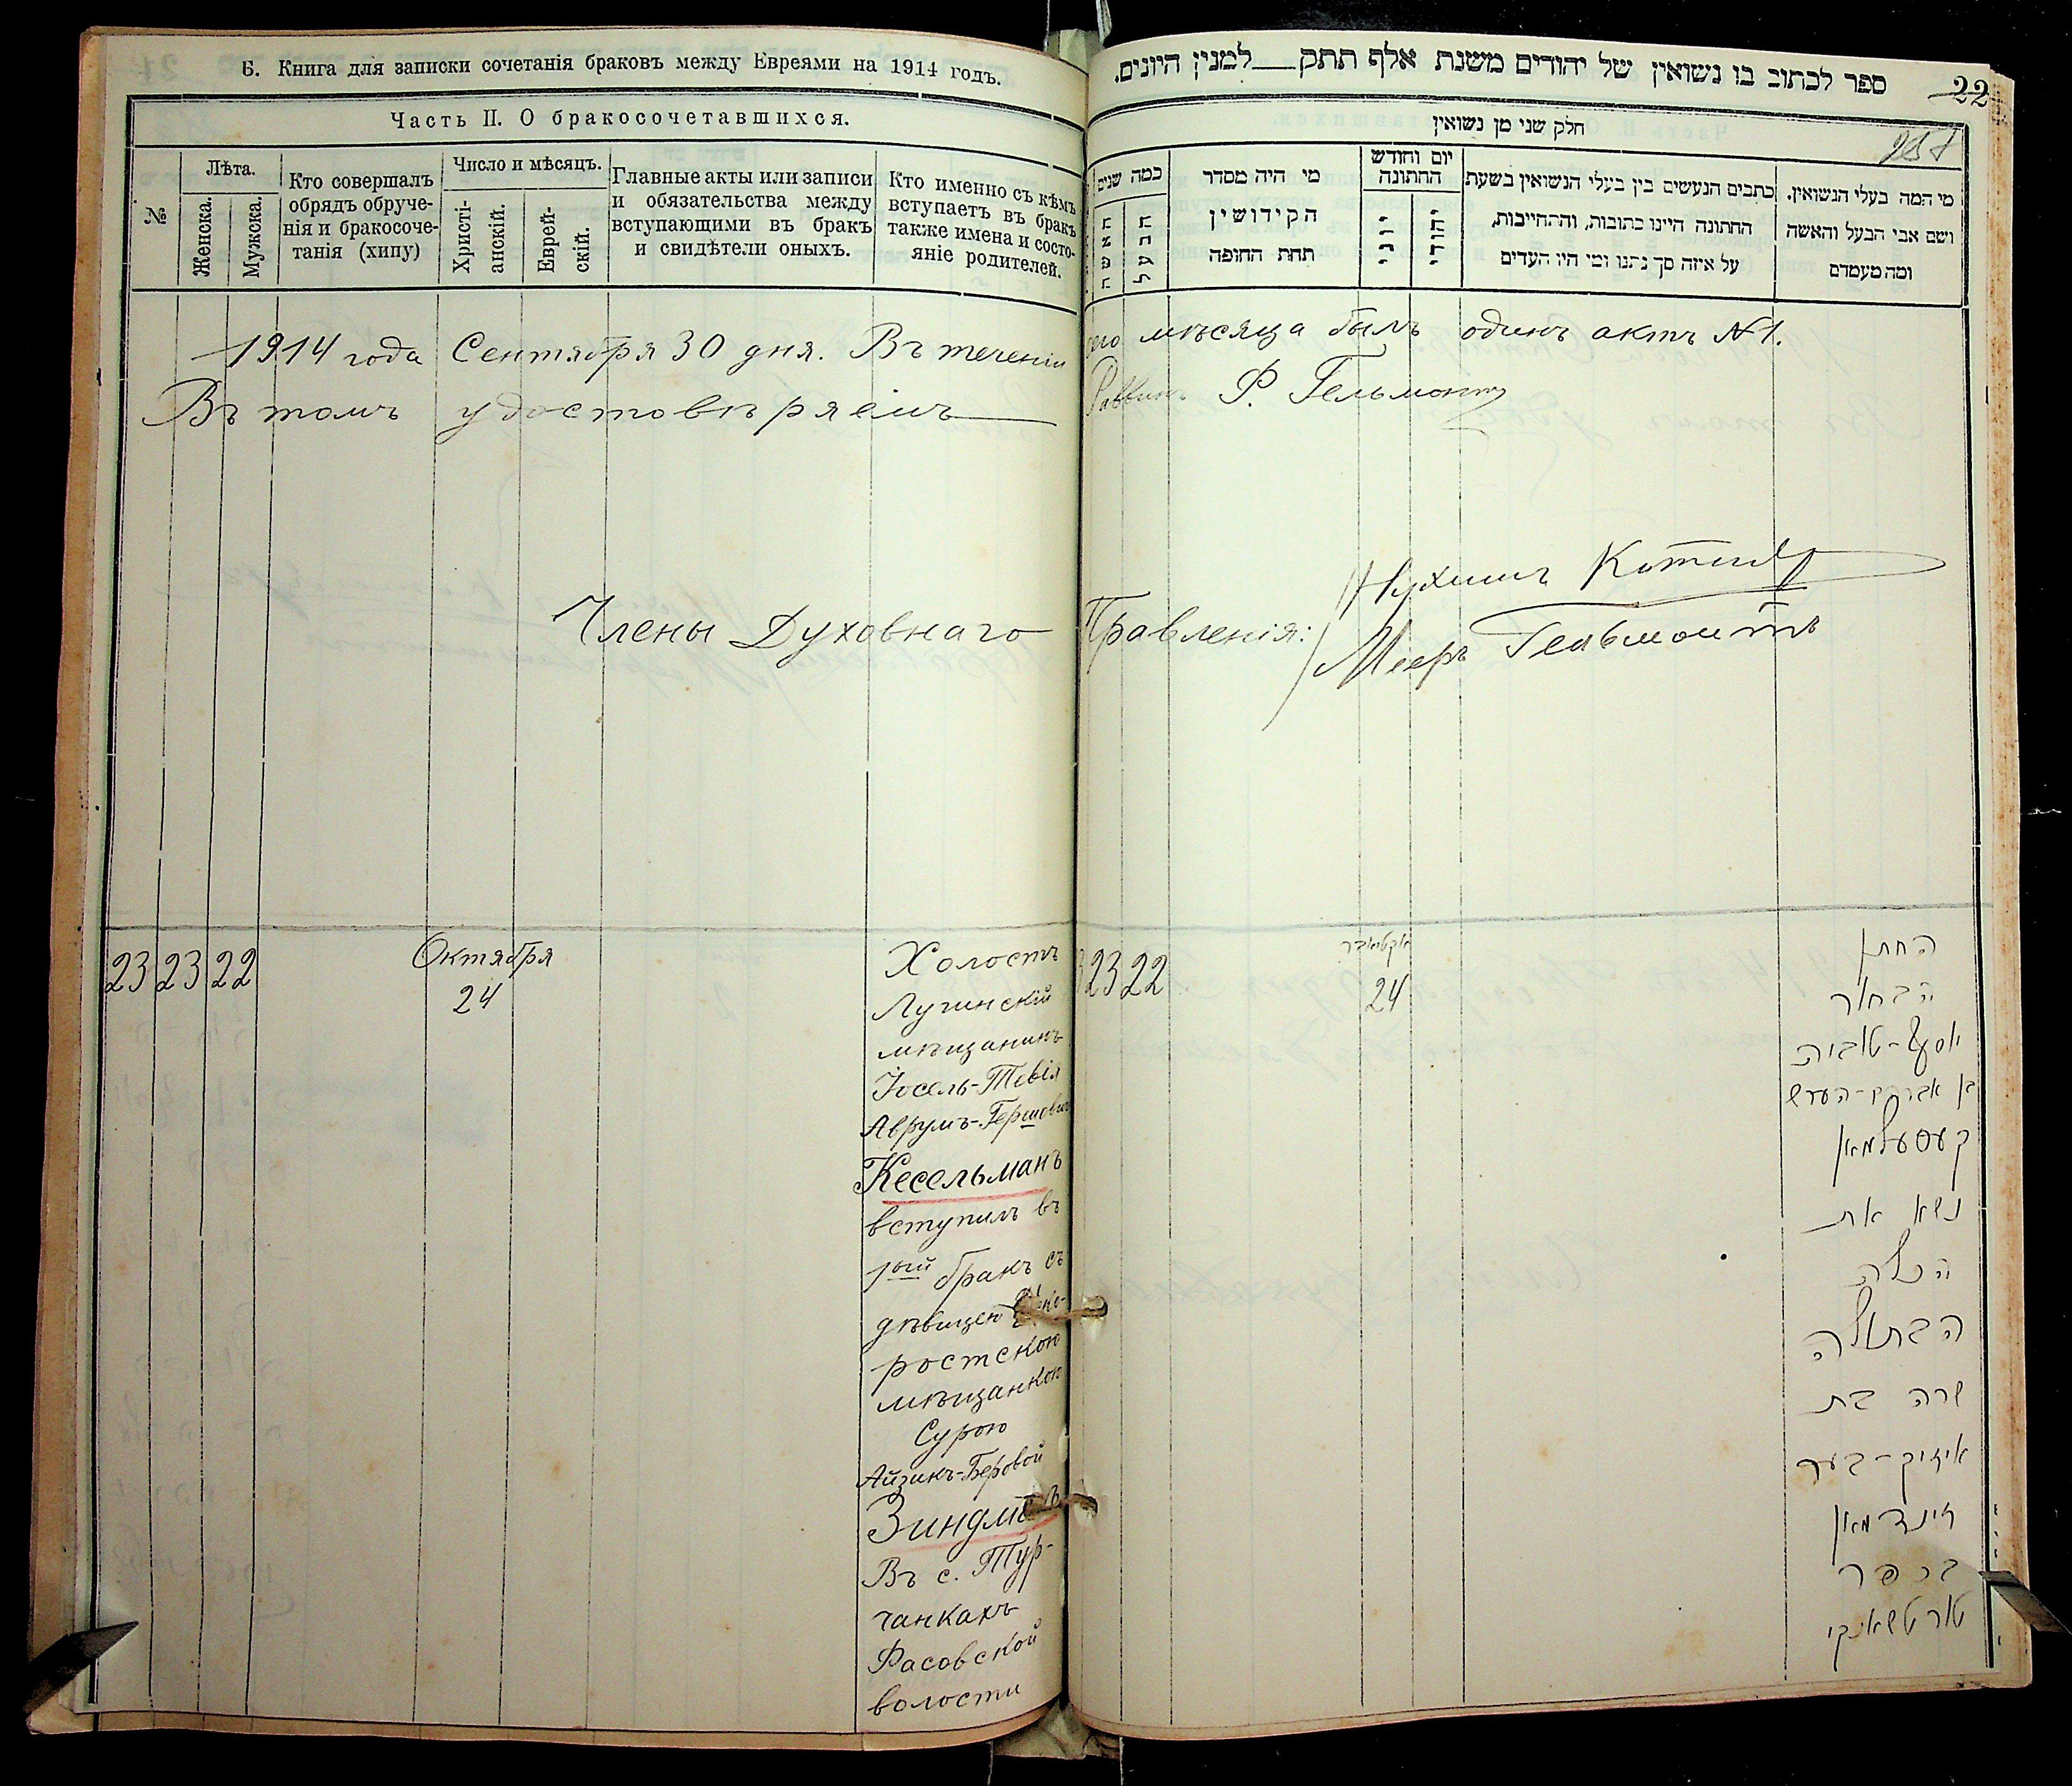 Б. Книга для записки сочетанія браковъ между Евреями на 1914 годъ.
Часть II. О бракосочетавшихся.
№
Лѣта.
Женска.
Мужска.
Кто совершалъ
обрядъ обруче-
нія и бракосоче-
танія (хипу)
Число и мѣсяцъ.
Христі-
анскій.
Еврей-
скій.
Главные акты или записи
и обязательства между
вступающими въ бракъ
и свидѣтели оныхъ.
Кто именно съ кѣмъ
вступаетъ въ бракъ
также имена и состо-
яніе родителей.
ספר לכתוב בו נשואין של יהודים משנת אלף תתק למנין היונים.
22
חלק שני מן נשואין
כמה שנים
האשה
הבעל
מי היה מסדר
הקידושין
תחת החופה
יום וחודש
החתונה
יוני
יהודי
כתבים הנעשים בין בעלי הנשואין בשעת
החתונה היינו כתובות, והתחייבות,
על איזה סך נתנו ומי היו העדים
מי המה בעלי הנשואין.
ושם אבי הבעל והאשה
ומה מעמדם
1914 года Сентября 30 дня. Въ теченіи сего мѣсяца былъ одинъ актъ №1.
Въ томъ удостовѣряемъ
Раввинъ Ф. Гельмонтъ
Члены Духовнаго Правленія:
Нухимъ Котляр
Мееръ Гельмонтъ
23 23 22
Октября
24
Холостъ
Лугинскій
мѣщанинъ
Іосель-Тевія
Аврумъ-Гершовичъ
Кесельманъ
вступилъ въ
1ый бракъ съ
дѣвицею
ростскою
мѣщанкою
Сурою
Айзикъ-Беровой
Въ с. Тур-
чанкахъ
Фасовской
волости
23 22
אקטאבר
24
החתן
הבחור
יאסעל-טוביה
בן אברהם-הערש
קעסעלמאן
נשא את
הכלה
הבתולה
שרה בת
אייזיק-בער
זינדמאן
בכפר
טורטשאנקי